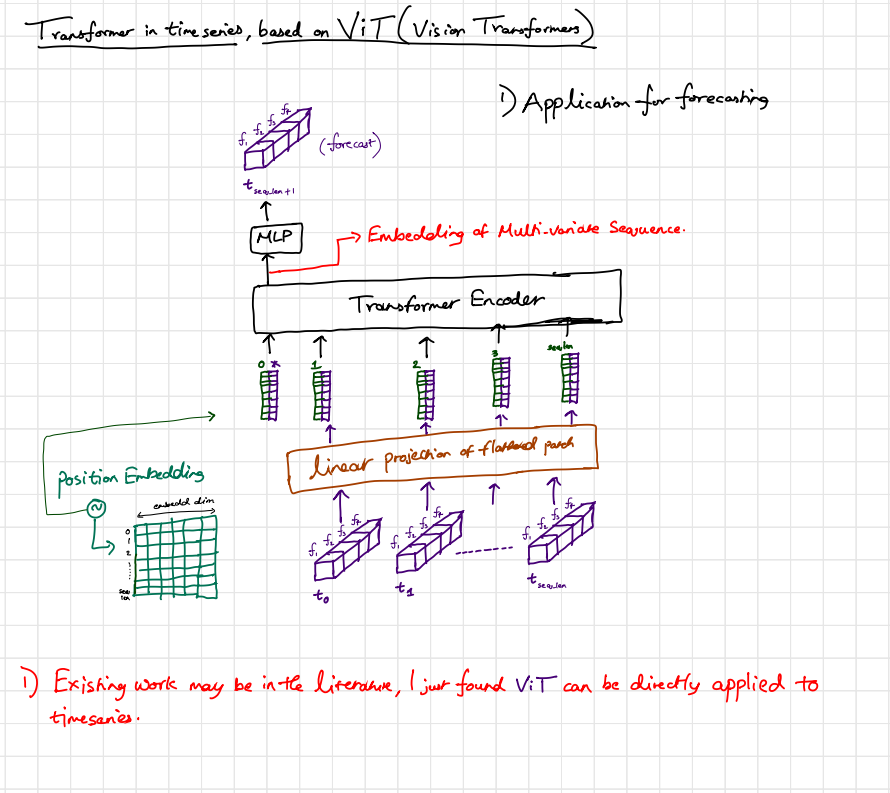 Transformer in time series, based on ViT (Vision Transformers)
1) Application for forecasting
f1 f2 f3 f4
(forecast)
t seq_len+1
MLP
Embedding of Multi-variate Sequence.
Transformer Encoder
0 * 1 2 3 seq_len
linear projection of flattened patch
Position Embedding
embedd dim
0
1
2
3
seq
len
f1 f2 f3 f4
f1 f2 f3 f4
f1 f2 f3 f4
t0
t1
t seq_len
1) Existing work may be in the literature, I just found ViT can be directly applied to
timeseries.